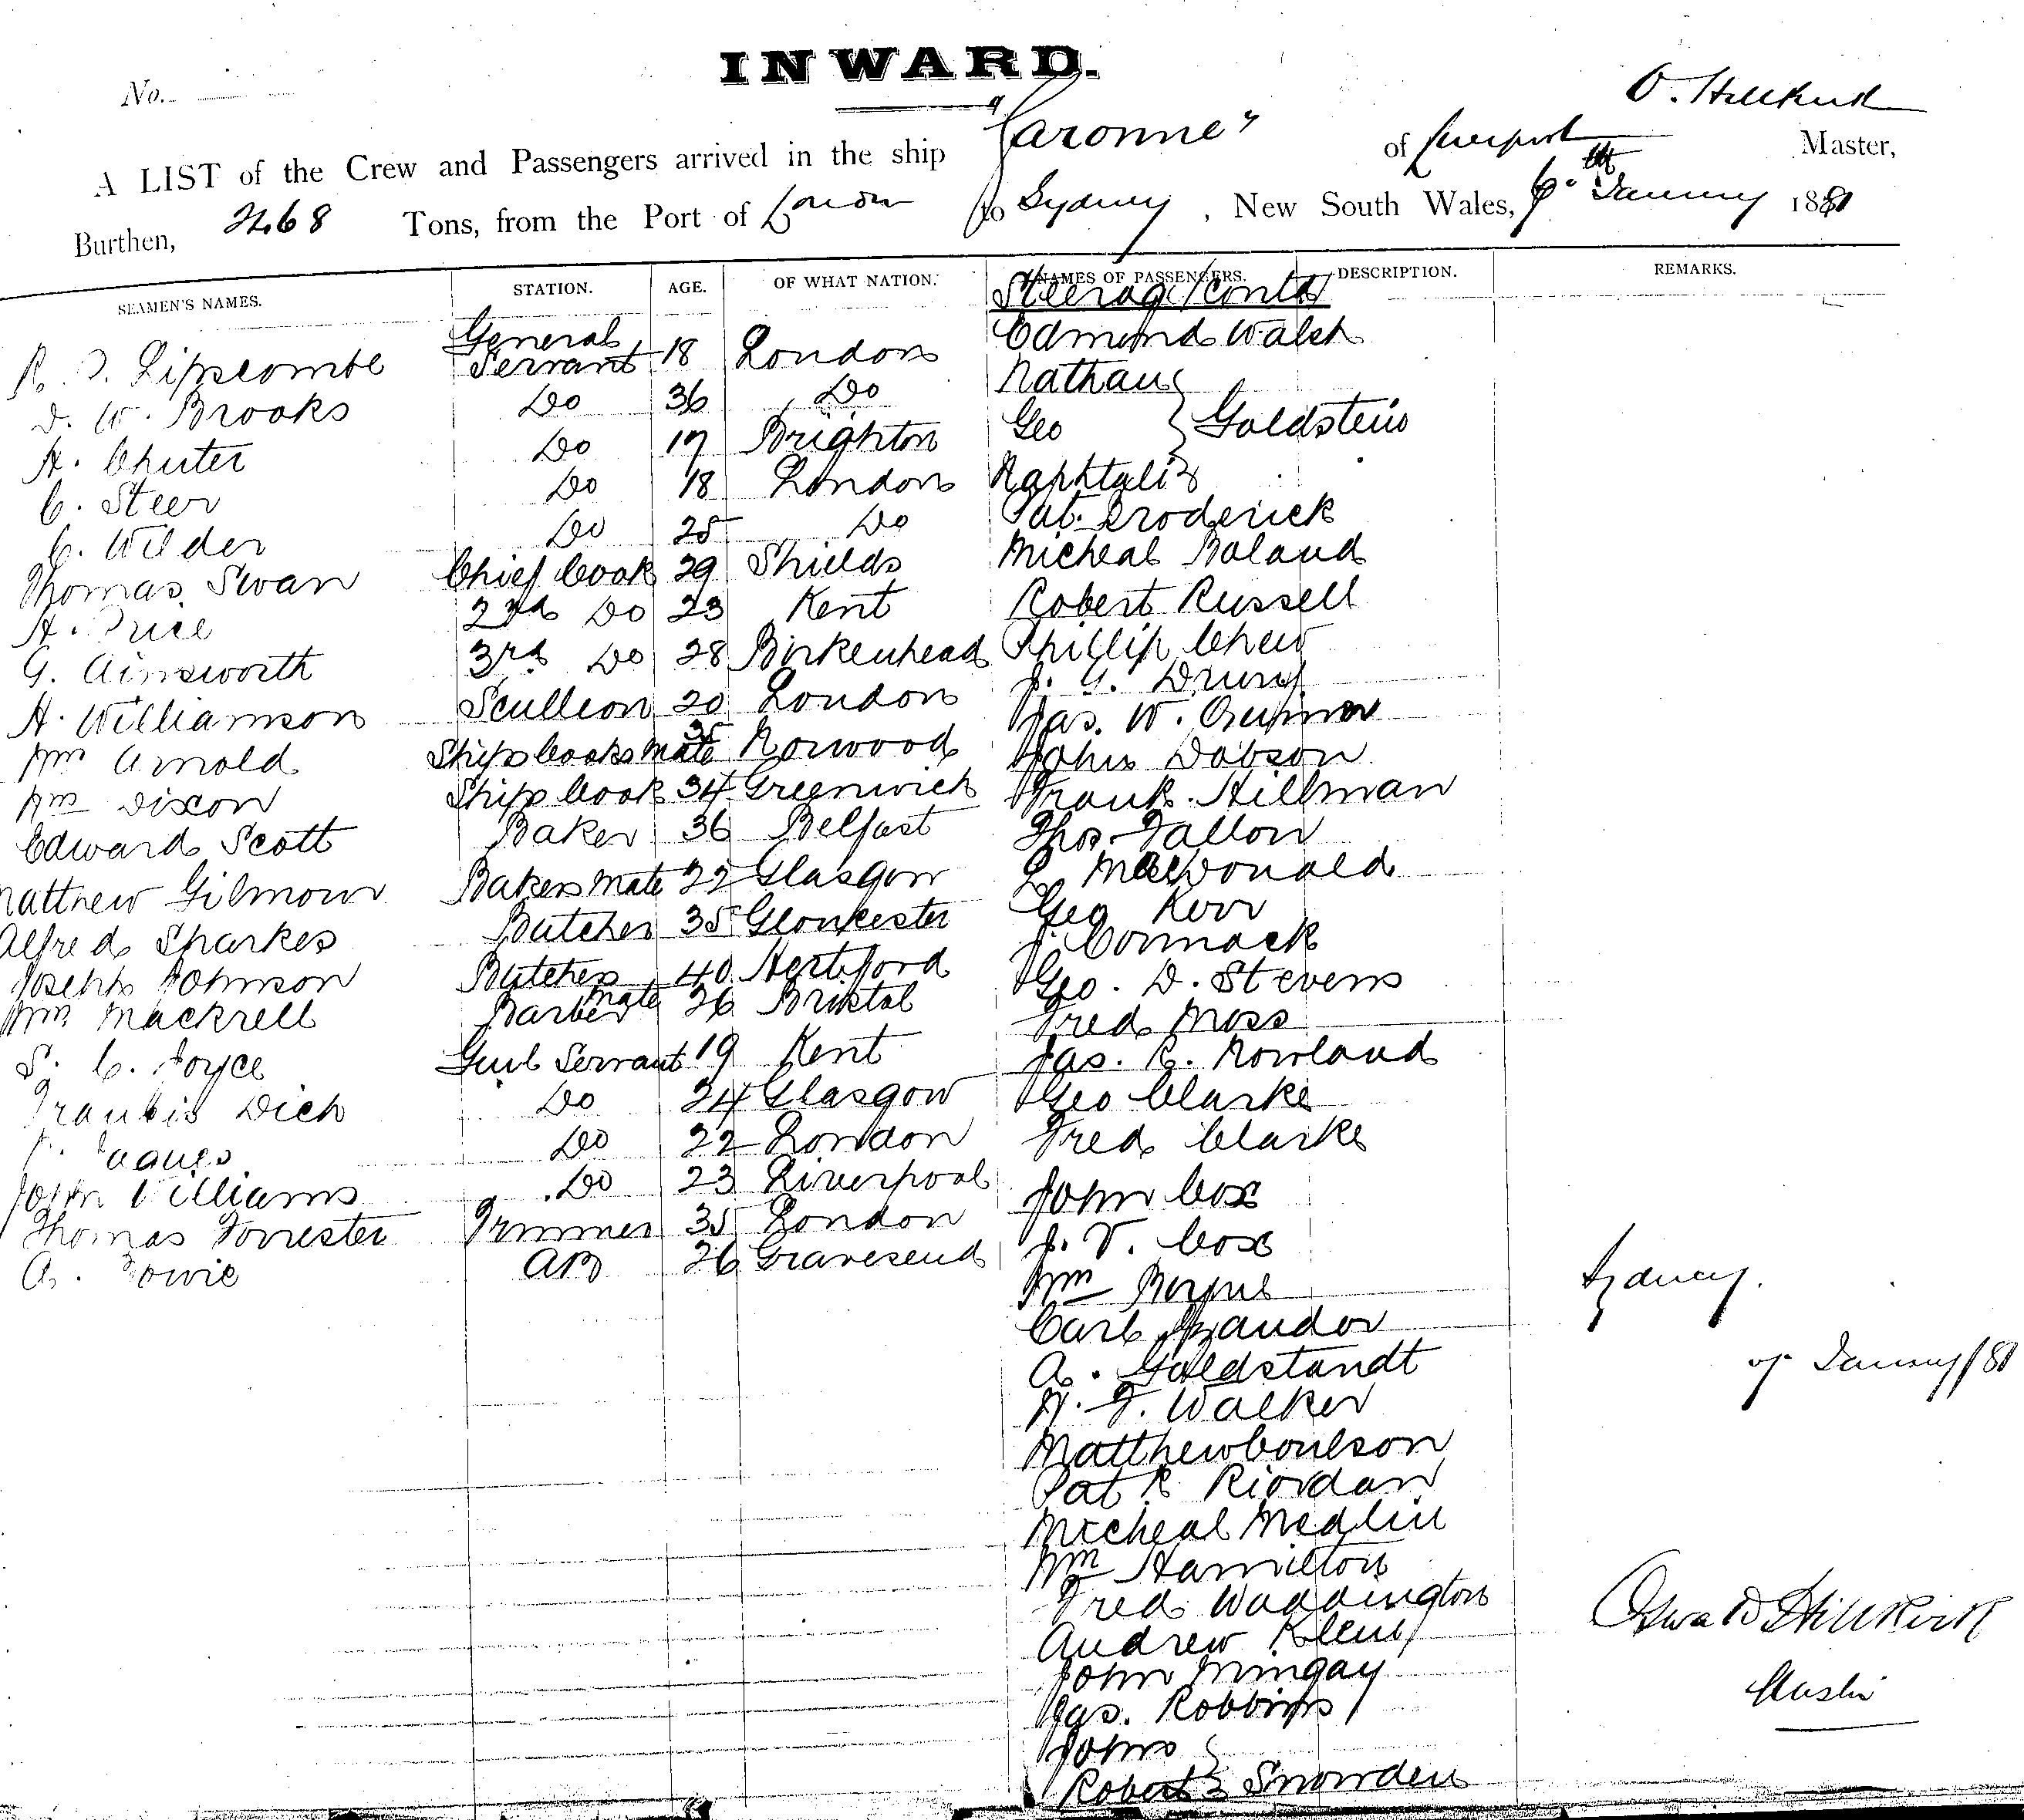 INWARD.
No.
O. Hillkirk
A LIST of the Crew and Passengers arrived in the ship "Garonne" of Liverpool Master,
Burthen, 2468 Tons, from the Port of London to Sydney, New South Wales, January 1881
SEAMEN'S NAMES. STATION. AGE. OF WHAT NATION. NAMES OF PASSENGERS. DESCRIPTION. REMARKS.
Steerage/Contd/
Lipscombe General Servant 18 London Edmund Walsh
W. Brooks Do 36 Do Nathan
A. Chuter Do 17 Brighton Geo } Goldstein
C. Steer Do 18 London Naphtali
C. Wilder Do 25 Do Pat. Broderick
Thomas Swan Chief Cook 29 Shields Micheal Boland
A. Price 2nd Do 23 Kent Robert Russell
G. Ainsworth 3rd Do 28 Birkenhead Phillip Chew
A. Williamson Scullion 20 London J. G. Drury
Wm Arnold Ships Cooks Mate 35 Norwood Jas. W.
Wm Dixon Ships Cook 34 Greenwich John Dobson
Edward Scott Baker 36 Belfast Frank Hillman
Matthew Gilmour Bakers Mate 22 Glasgow Thos. Fallon
Alfred Sharkes Butcher 35 Gloucester L MacDonald
Joseph Johnson Butchers Mate 40 Hertford Geo Kerr
Wm Mackrell Barber 26 Bristol J. Cormack
S. C. Joyce Genl Servant 19 Kent Geo. D. Stevens
Francis Dick Do 24 Glasgow Fred Moss
Do 22 London Jas. R. Rowland
John Williams Do 23 Liverpool Geo Clarke
Thomas Forrester Trimmer 35 London Fred Clarke
A. AB 26 Gravesend John Cox
J. V. Cox
Wm
Carl
A. Goldstandt
H. F. Walker
Matthew Coulson
Pat R Riordan
Micheal Medlin
Wm Hamilton
Fred Waddington
Andrew Klein
John Mingay
Jas. Robbins
John
Robert } Snowden
Sydney.
January/81
Oswald Hillkirk
Master